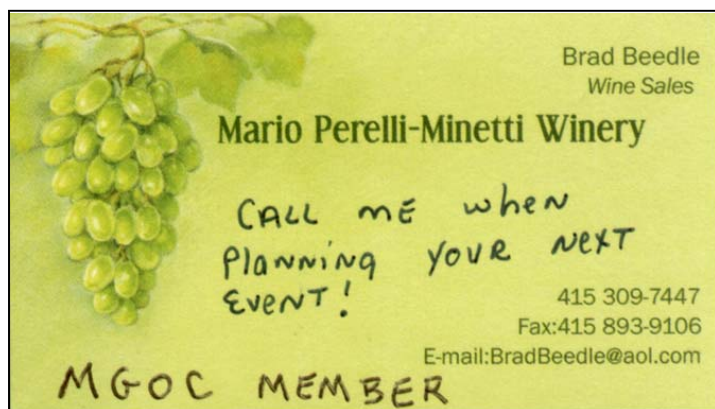 Brad Beedle
Wine Sales
Mario Perelli-Minetti Winery
CALL ME when
PlANNiNg YOUR NEXT
EVENT!
415 309-7447
Fax:415 893-9106
E-mail:BradBeedle@aol.com
MGOC MEMBER